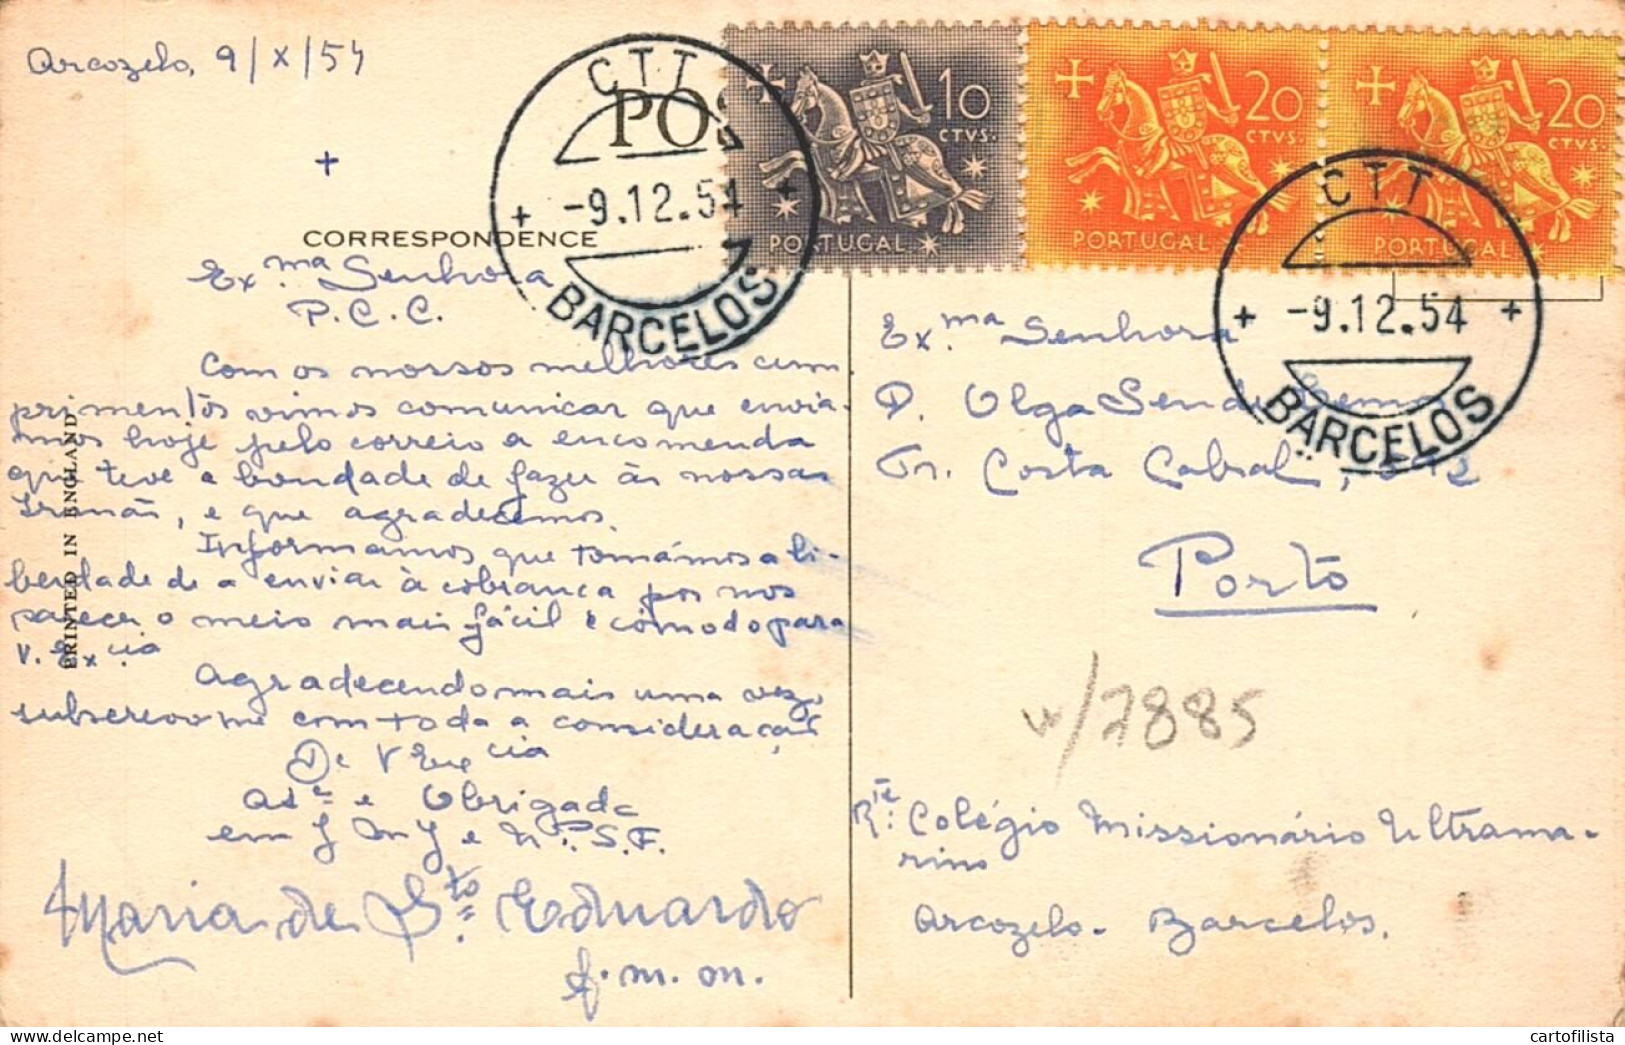 Arcozelo, 9/X/54
+
CORRESPONDENCE
PO
Ex.ma Senhora
P.C.C.
Com os nossos melhores cum
primentos vimos comunicar que envia-
mos hoje pelo correio a encomenda
que teve a bondade de fazer às nossas
Irmãs, e que agradecemos.
Informamos que tomámos a li-
berdade de a enviar à cobrança por nos
parecer o meio mais fácil e cómodo para
V. Ex.cia
Agradecendo mais uma vez,
subscrevo-me com toda a consideração
De V Exe cia
e Obrigada
em J M J e N. P. S. F.
Maria de Sto Eduardo
f. m. m.
PRINTED IN ENGLAND
CTT
-9.12.54
BARCELOS
10
CTVS.
PORTUGAL
20
CTVS.
PORTUGAL
20
CTVS.
PORTUGAL
CTT
-9.12.54
BARCELOS
Ex.ma Senhora
D. Olga
Costa Cabral,
Porto
/7885
R.te: Colégio Missionário Ultrama-
rino
Arcozelo - Barcelos.
cartofilista